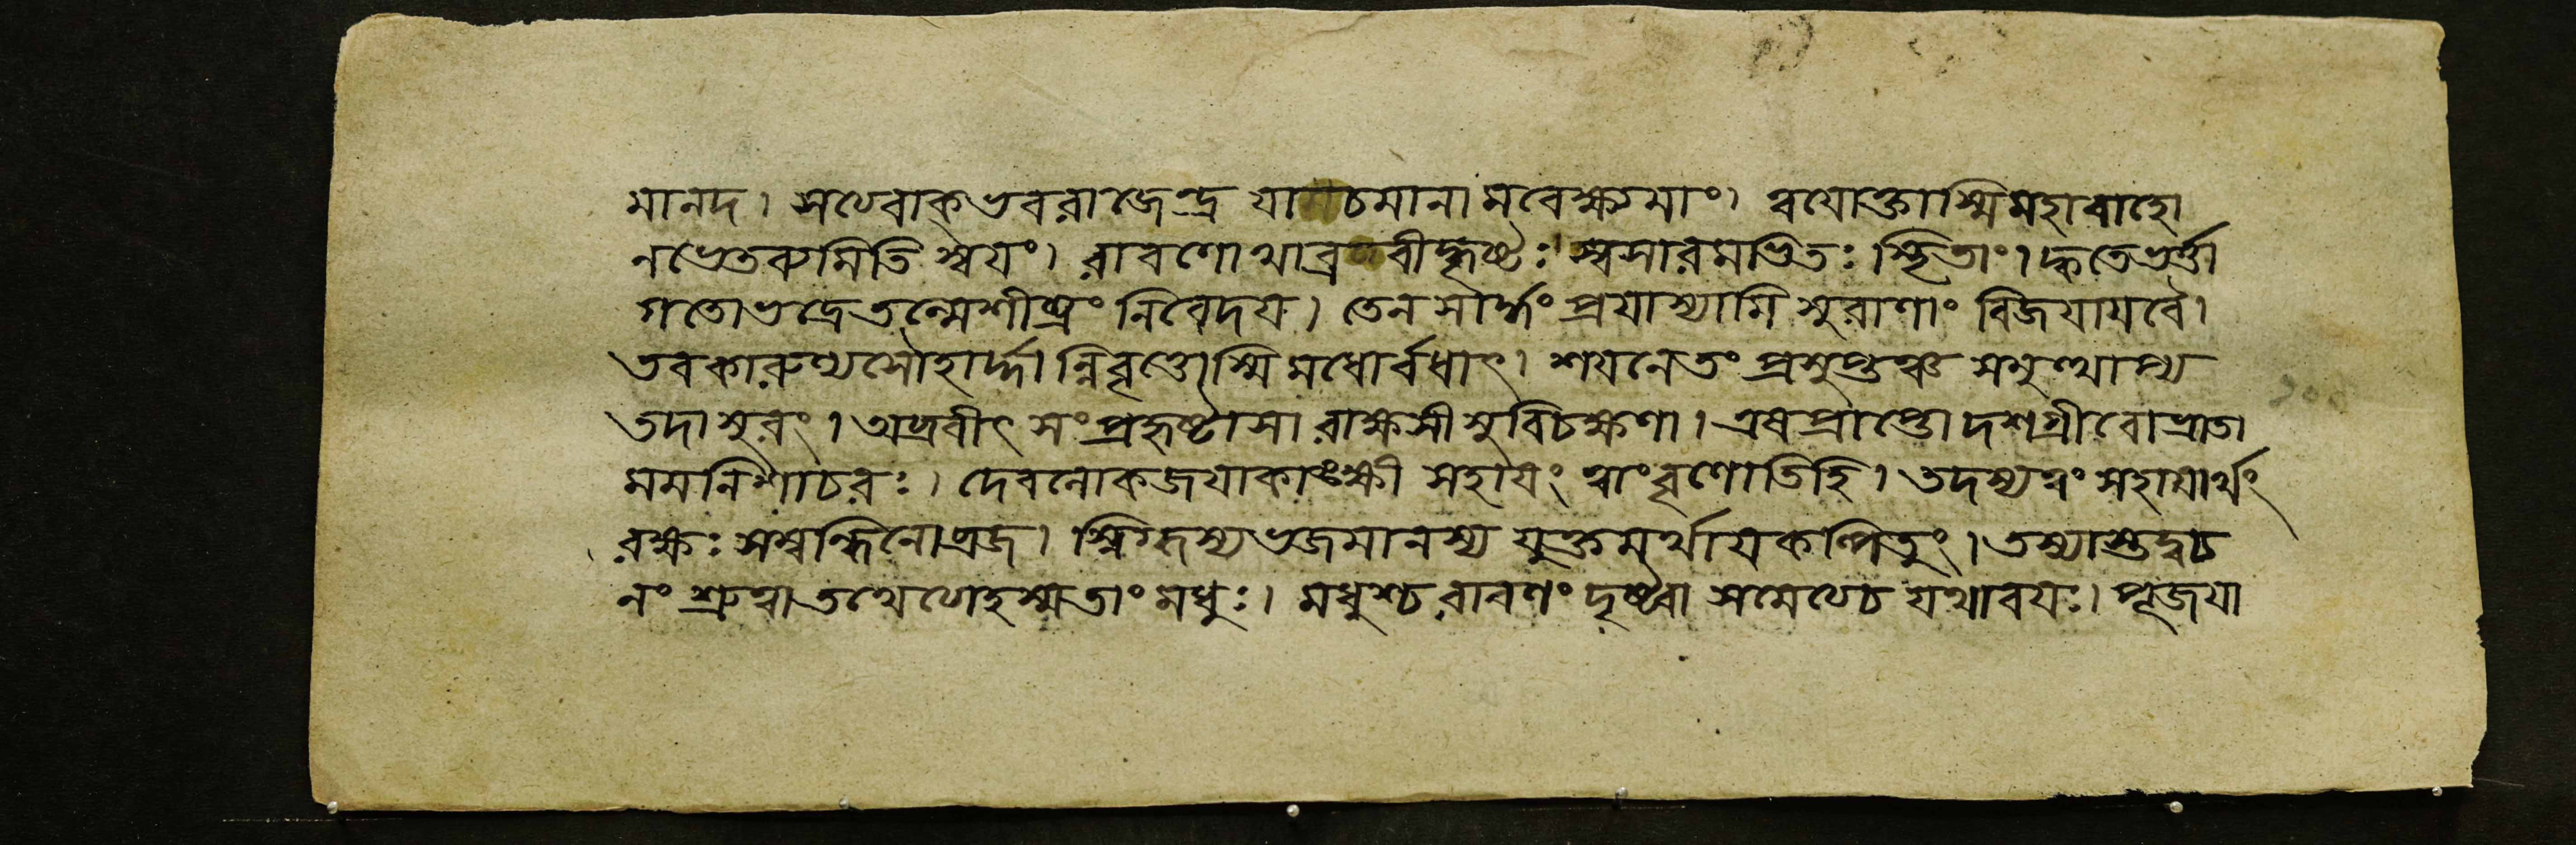 মানদ। সত্যবাক্ ভব রাজেন্দ্র যাচমানামবেক্ষ্য মাং। ত্বয়োক্তাস্মি মহাবাহো
ন ভেতব্যমিতি স্বয়ং। রাবণোথাব্রবীদ্ধৃষ্টঃ স্বসারমভিতঃ স্থিতাং। ক্ব তে ভর্ত্তা
গতো ভদ্রে তন্মে শীঘ্রং নিবেদয়। তেন সার্দ্ধং প্রযাস্যামি সুরাণাং বিজয়ায় বৈ।
তব কারুণ্যসৌহার্দ্দান্নিবৃত্তোস্মি মধোর্বধাৎ। শয়নে তং প্রসুপ্তঞ্চ সমুত্থাপ্য
তদাসুরং। অব্রবীৎ সংপ্রহৃষ্টা সা রাক্ষসী সুবিচক্ষণা। এষ প্রাপ্তো দশগ্রীবো ভ্রাতা
মম নিশাচরঃ। দেবলোকজয়াকাঙ্ক্ষী সহায়ং ত্বাং বৃণোতি হি। তদস্য ত্বং সহায়ার্থং
রক্ষঃ সম্বন্ধিনো ব্রজ। স্নিগ্ধস্য ভজমানস্য যুক্তমর্থায় কল্পিতুং। তস্যাস্তদ্বচ
নং শ্রুত্বা তথেত্যেহস্ম তাং মধুঃ। মধুশ্চ রাবণং দৃষ্ট্বা সমেত্য চ যথাবয়ঃ। পূজয়া